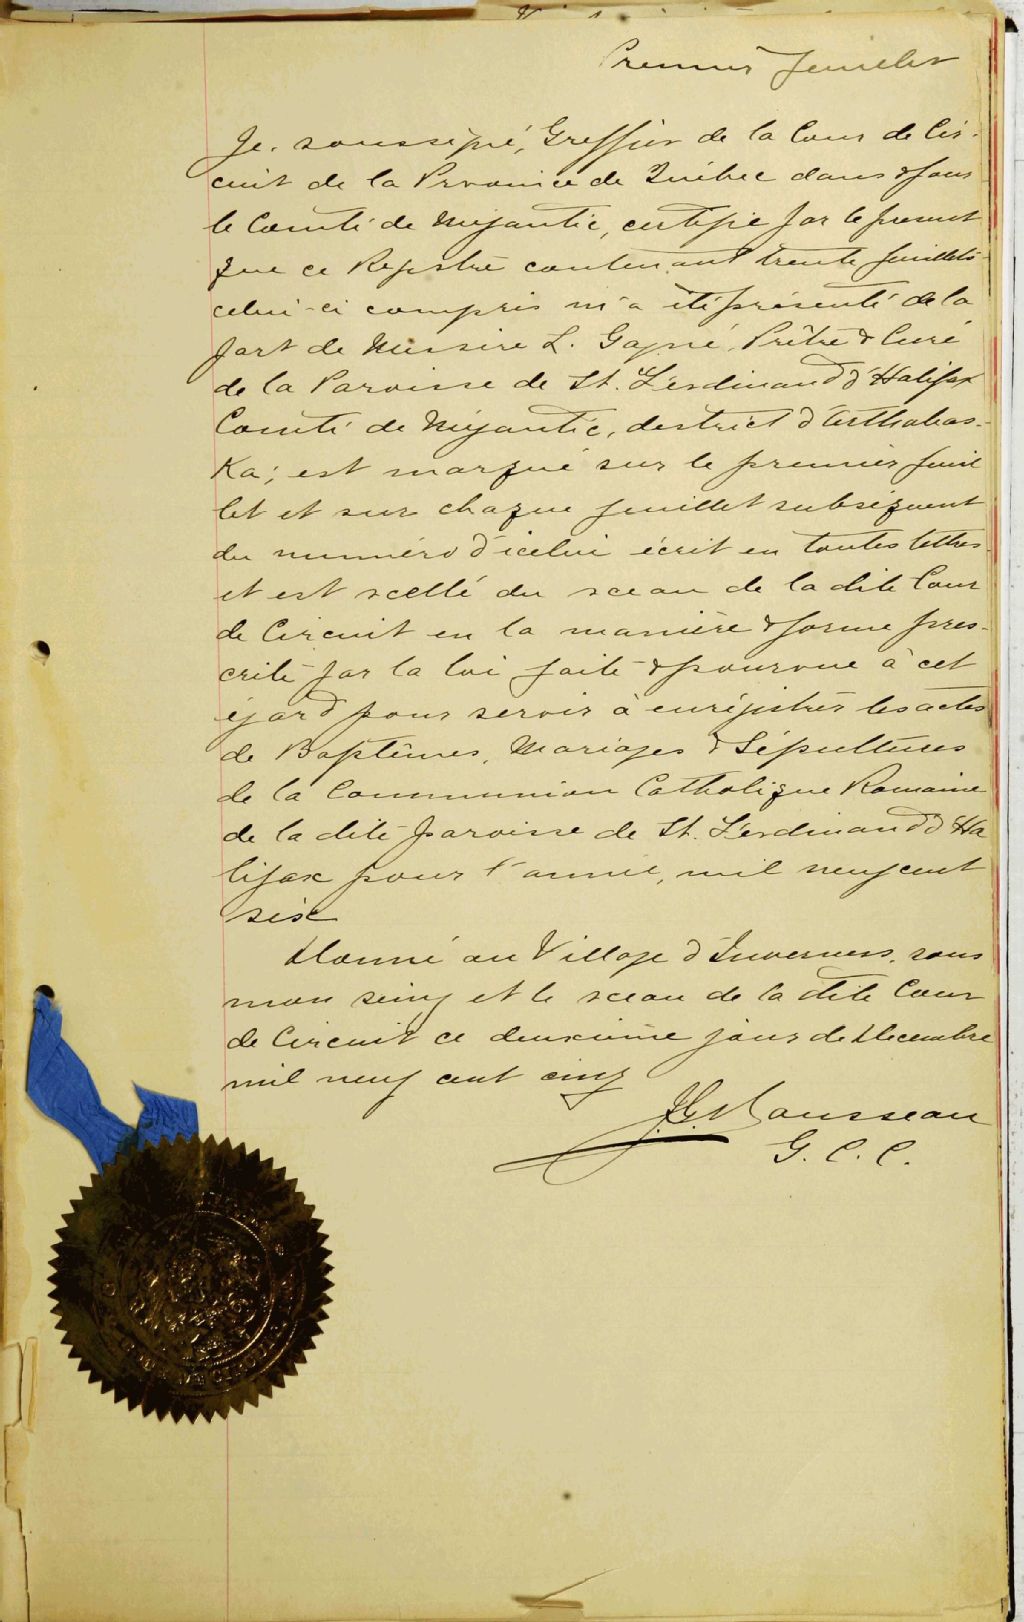 Premier feuillet
Je, soussigné, Greffier de la Cour de Cir-
cuit de la Province de Québec dans & pour
le Comté de Mégantic, certifie par le présent
que ce Registre contenant trente feuillets
celui-ci compris m'a été présenté de la
part de Messire L. Gagné, Prêtre & Curé
de la Paroisse de St. Ferdinand d'Halifax
Comté de Mégantic, district d'Arthabas-
Ka; est marqué sur le premier feuil
let et sur chaque feuillet subséquent
du numéro d'icelui écrit en toutes lettres
et est scellé du sceau de la dite Cour
de Circuit en la manière & forme pres-
crite par la loi faite & pourvue à cet
égard pour servir à enrégistrer les actes
de Baptêmes, Mariages & Sépultures
de la Communion Catholique Romaine
de la dite paroisse de St. Ferdinand d'Ha
lifax pour l'année, mil neuf cent
six
Donné au Village d'Inverness, sous
mon seing et le sceau de la dite Cour
de Circuit ce deuxième jour de Decembre
mil neuf cent cinq
Rousseau
G. C. C.